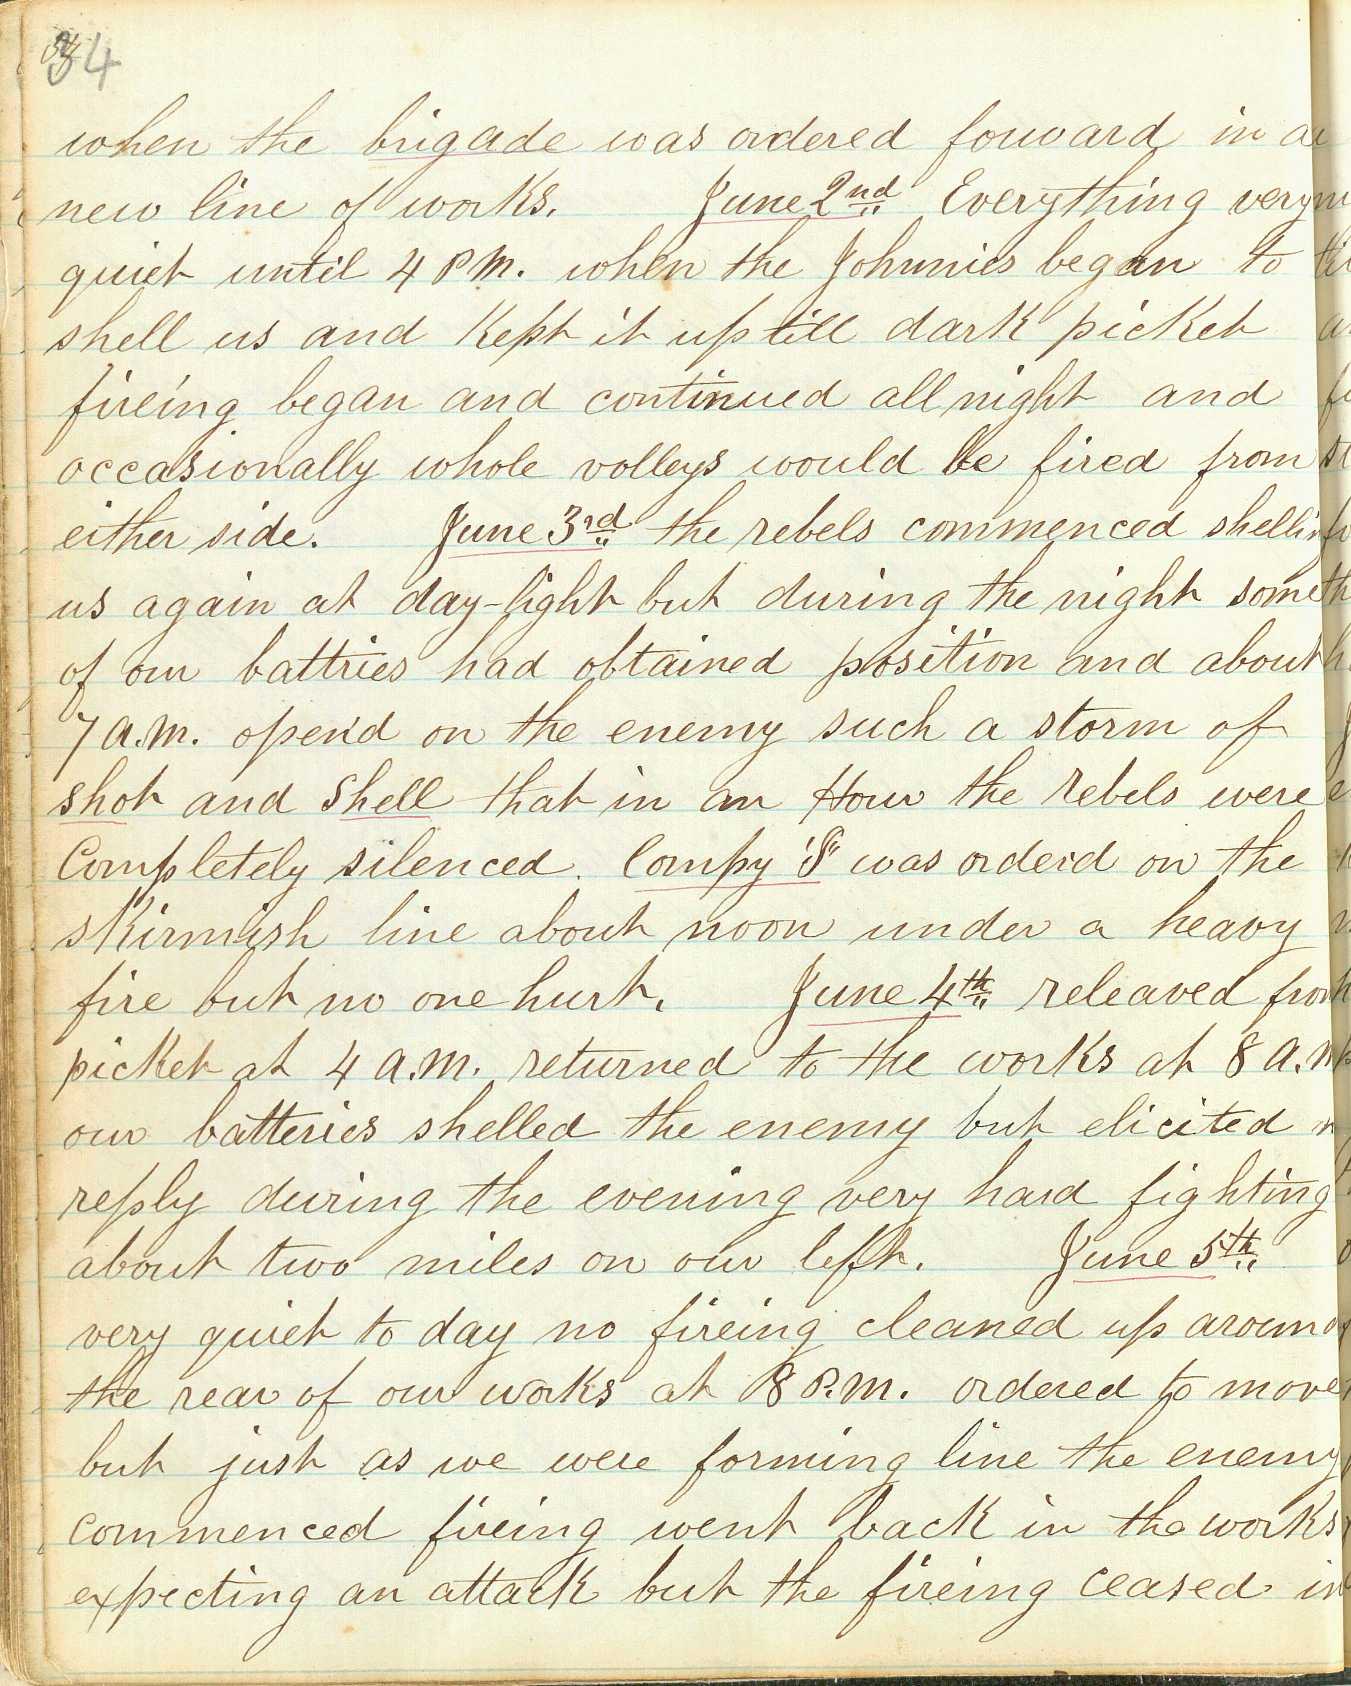 34
when the brigade was ordered forward in a
new line of works. June 2nd Everything very
quiet until 4 PM. when the Johnnies began to
shell us and Kept it up till dark picket
fireing began and continued all night and
occasionally whole volleys would be fired from
either side. June 3rd the rebels commenced shelling
us again at day-light but during the night some
of our battries had obtained position and about
7 a.m. open'd on the enemy such a storm of
shot and Shell that in an Hour the rebels were
Completely silenced. Compy was orderd on the
skirmish line about noon under a heavy
fire but no one hurt. June 4th releaved from
picket at 4 a.m. returned to the works at 8 A.M
our batteries shelled the enemy but elicited
reply during the evening very hard fighting
about two miles on our left. June 5th
very quiet to day no fireing cleaned up around
the rear of our works at 8 P.M. ordered to move
but just as we were forming line the enemy
commenced fireing went back in the works
expecting an attack but the fireing ceased in